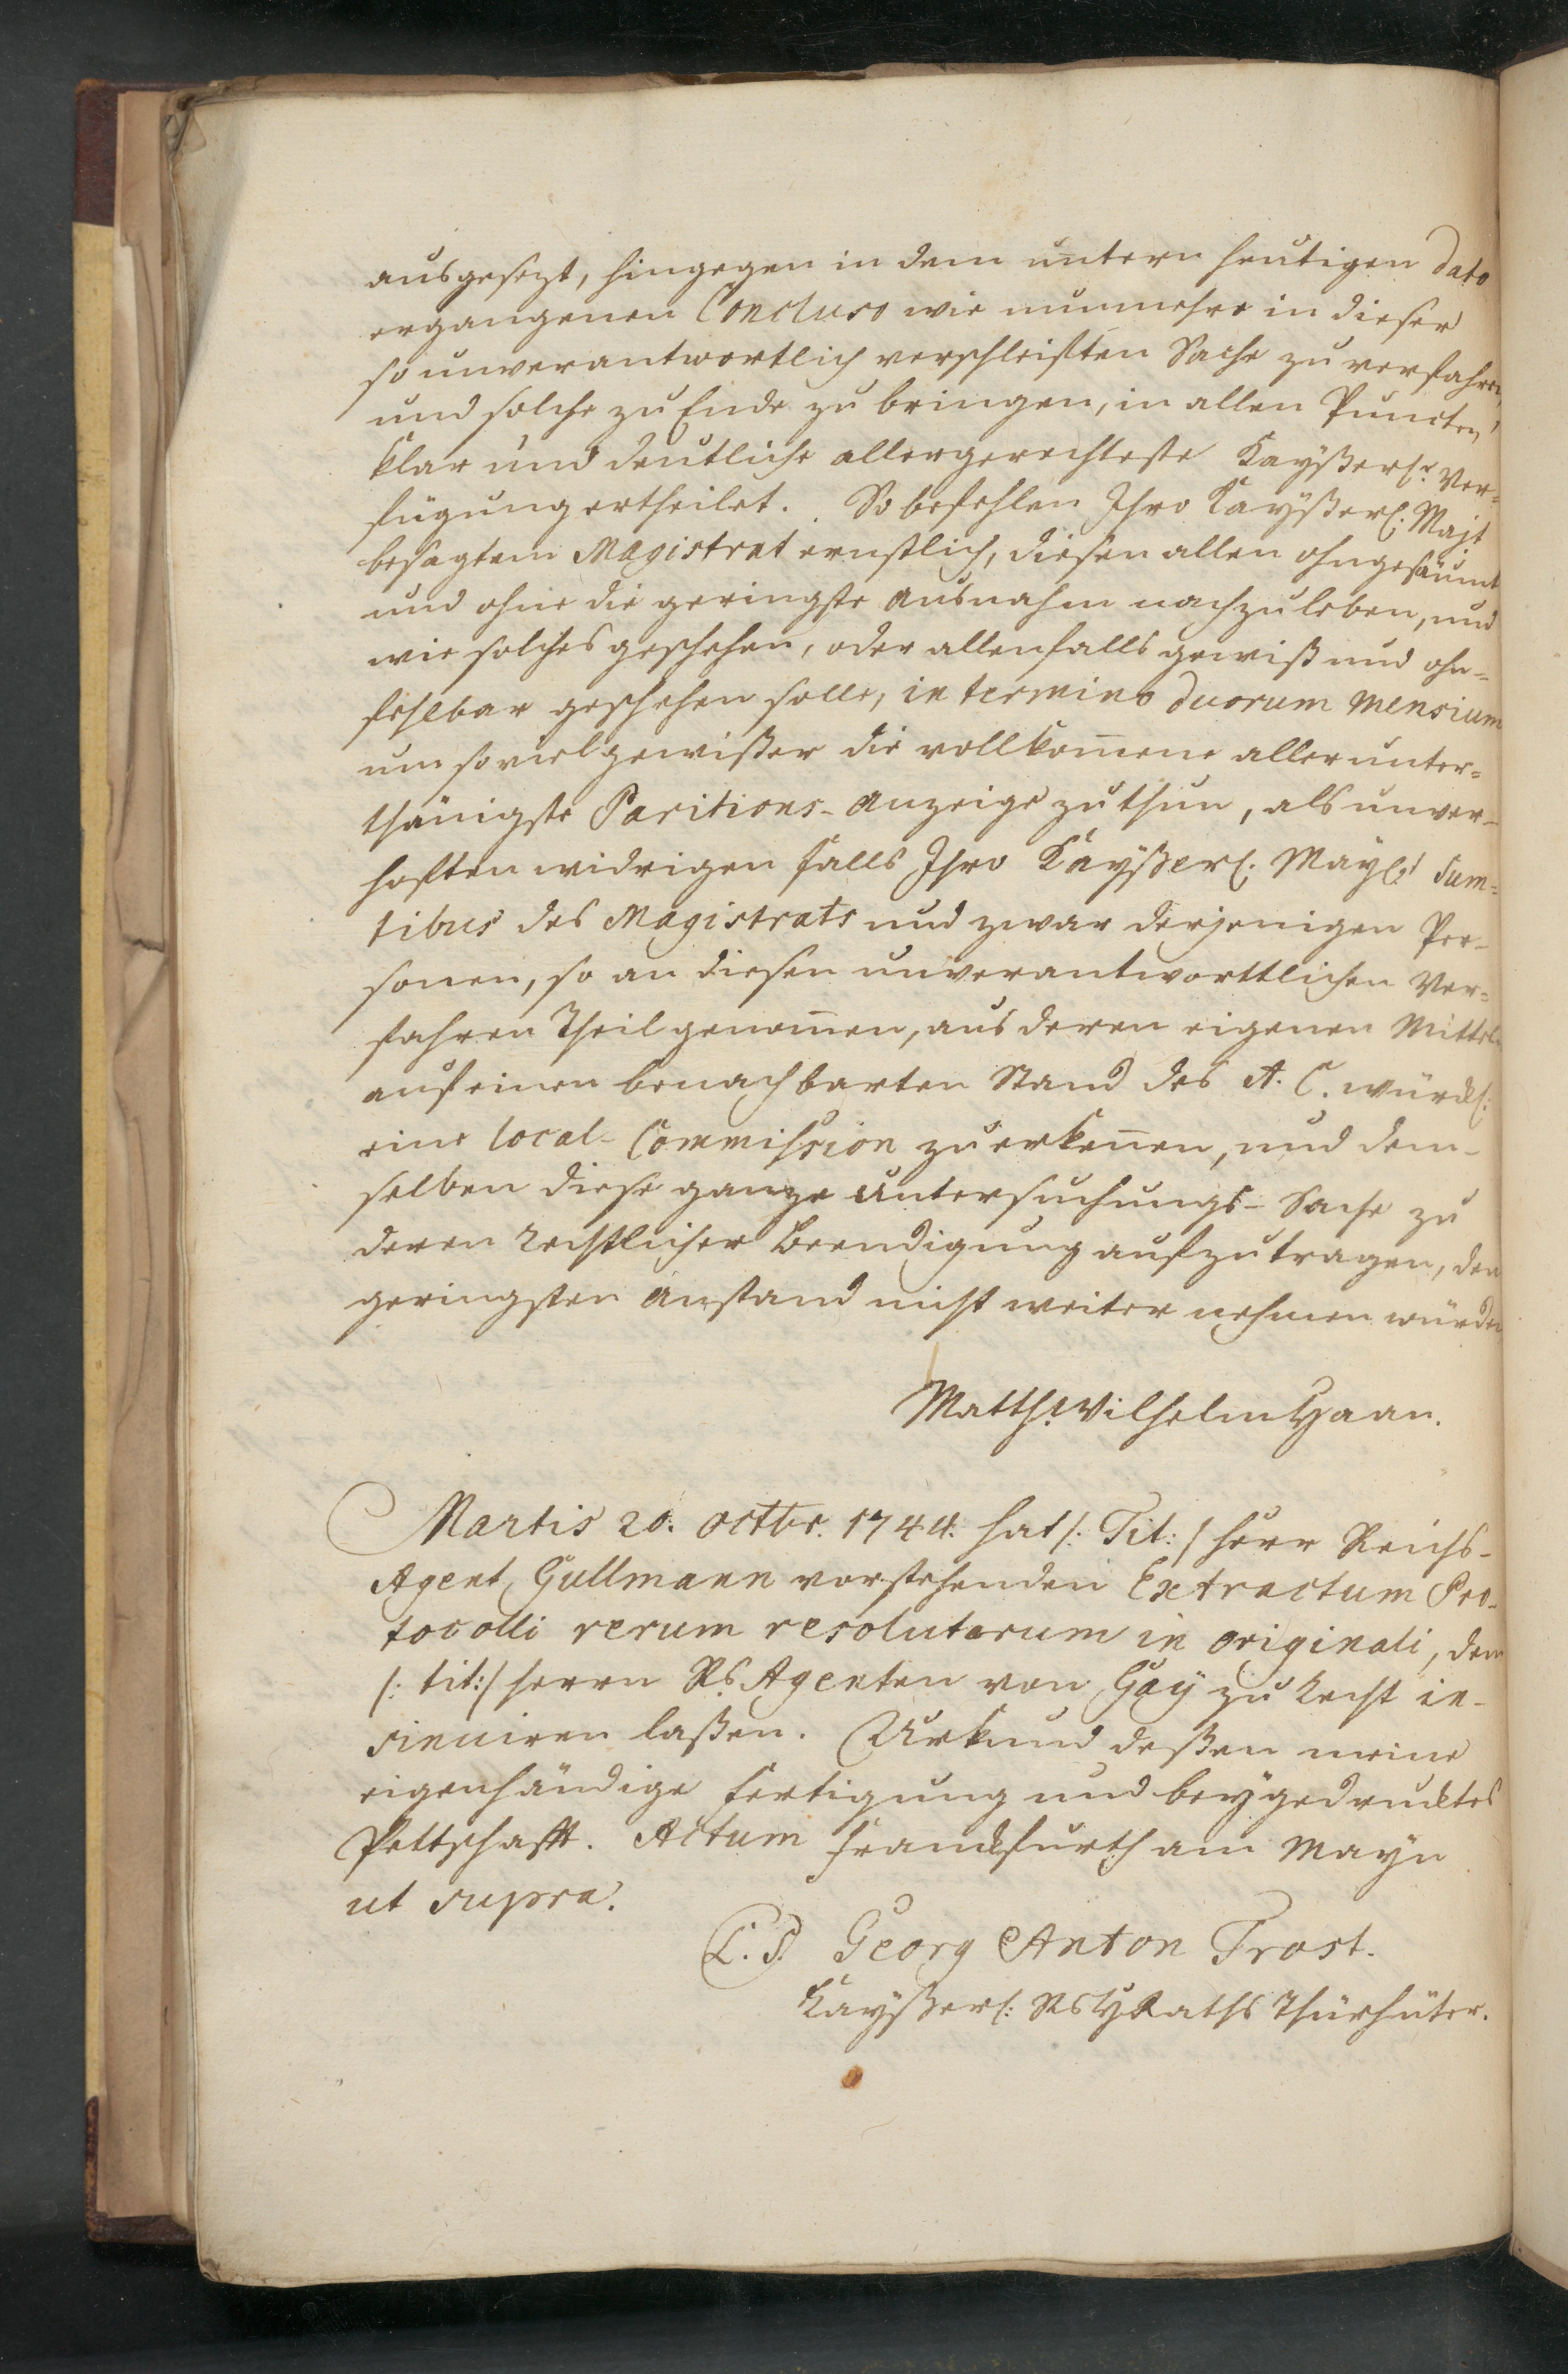 ausgesezt, hingegen in dem untern heutigen dato
ergangenen Concluso wie nunmehro in dieser
so unverantwortlich verschleifften Sache zu verfahren,
und solche zu Ende zu bringen, in allen Puncten,
klar und deutliche allergerechteste Kayßerl.r Ver-
fügung ertheilet. So befehlen Ihro Kayßerl: Majt
besagtem Magistrat ernstlich, diesen allen ohngesäumt
und ohne die geringste Ausnahm nachzuleben, und
wie solches geschehen, oder allenfalls gewiß und ohn-
fehlbar geschehen solle, in termino duorum mensium
um so viel gewißer die vollkom̄ene allerunter-
thänigste Paritions-Anzeige zu thun, als unver-
hofften widrigen falls Ihro Kayßerl: Mayl.t sum-
tibus des Magistrats und zwar derjenigen Per-
sonen, so an diesen unverantworttlichen Ver-
fahren Theil genom̄en, aus deren eigenen Mitteln
auf einen benachbarten Stand des A. C. würckl:
eine local-Commission zu erken̄en, und dem-
selben diese ganze Untersuchungs-Sache zu
deren rechtlicher Beendigung aufzutragen, den
geringsten Anstand nicht weiter nehmen würden
Matth: Wilhelm Haan.
Martis 20. octbr. 1744. hat /: Tit: / Herr Reichs-
Agent Gullmann vorstehenden Extractum Pro-
tocolli rerum resolutarum in originali, dem
/: tit: / Herrn Rs Agenten von Gay zu Recht in-
sinuiren laßen. Urkund deßen meine
eigenhändige Fertigung und beygedrucktes
Pettschafft. Actum Franckfurth am Mayn
ut supra.
L. S. Georg Anton Trost.
Kayßerl: RsHRaths Thürhüter.